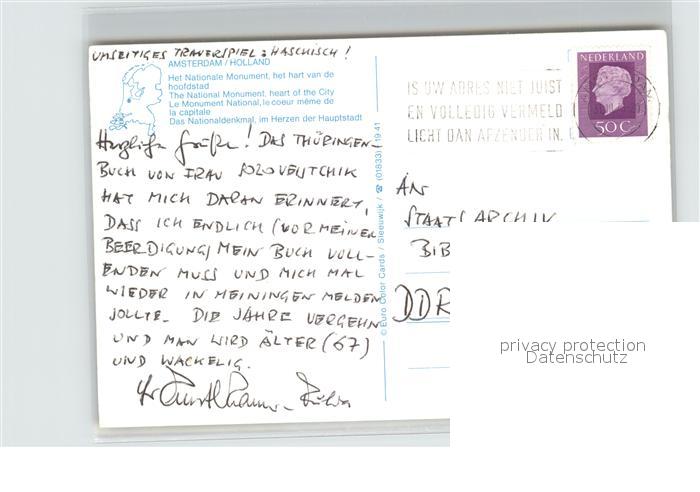 UMSEITIGES TRAUERSPIEL: HASCHISCH!
AMSTERDAM / HOLLAND
Het Nationale Monument, het hart van de
hoofdstad
The National Monument, heart of the City
Le Monument National, le coeur même de
la capitale
Das Nationaldenkmal, im Herzen der Hauptstadt
Herzliche Grüße! DAS THÜRINGEN-
BUCH VON FRAU
HAT MICH DARAN ERINNERT,
DASS ICH ENDLICH (VOR MEINER
BEERDIGUNG) MEIN BUCH VOLL-
ENDEN MUSS UND MICH MAL
WIEDER IN MEININGEN MELDEN
SOLLTE. DIE JAHRE VERGEHN
UND MAN WIRD ÄLTER (67)
UND WACKELIG.
© Euro Color Cards / Sleeuwijk / ☎ (01833) 19 41
IS UW ADRES NIET JUIST
EN VOLLEDIG VERMELD
LICHT DAN AFZENDER IN.
NEDERLAND
50 C
AN
STAATSARCHIV
BIB
DDR
privacy protection
Datenschutz